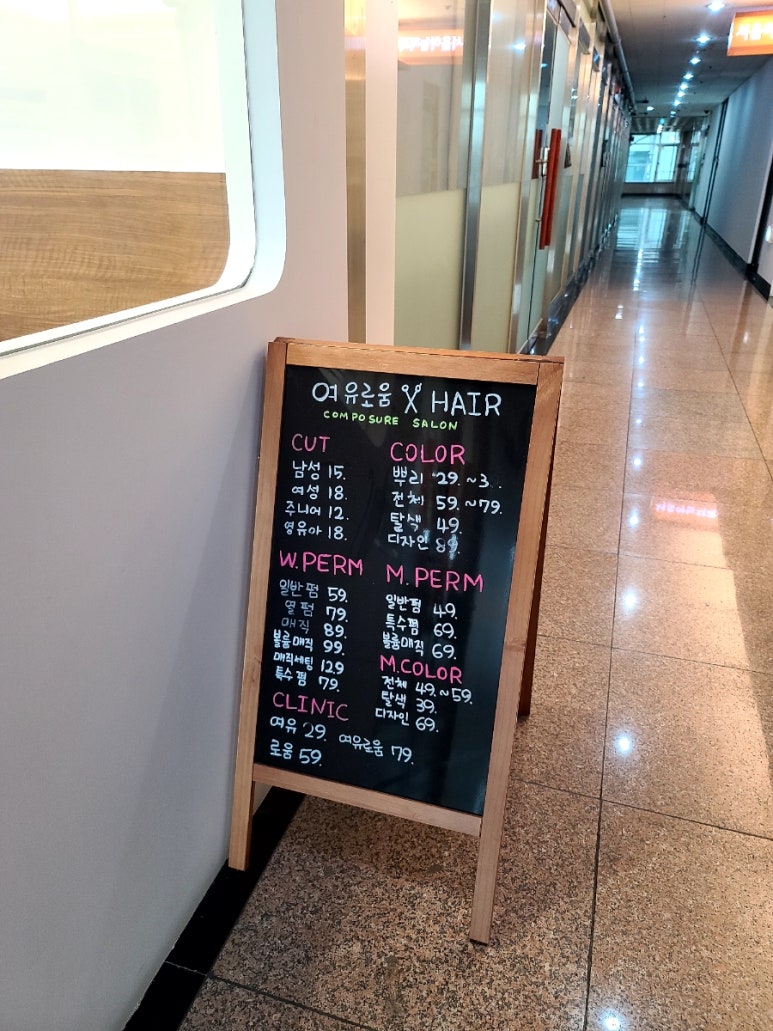 여유로움 HAIR
COMPOSURE SALON
CUT
남성 15.
여성 18.
주니어 12.
영유아 18.
COLOR
뿌리 29.~3
전체 59.~79.
탈색 49.
디자인 89.
W.PERM
일반펌 59.
열펌 79.
매직 89.
볼륨매직 99.
매직세팅 129
특수펌 79.
M.PERM
일반펌 49.
특수펌 69.
볼륨매직 69.
M.COLOR
전체 49.~59.
탈색 39.
디자인 69.
CLINIC
여유 29. 여유로움 79.
로움 59.